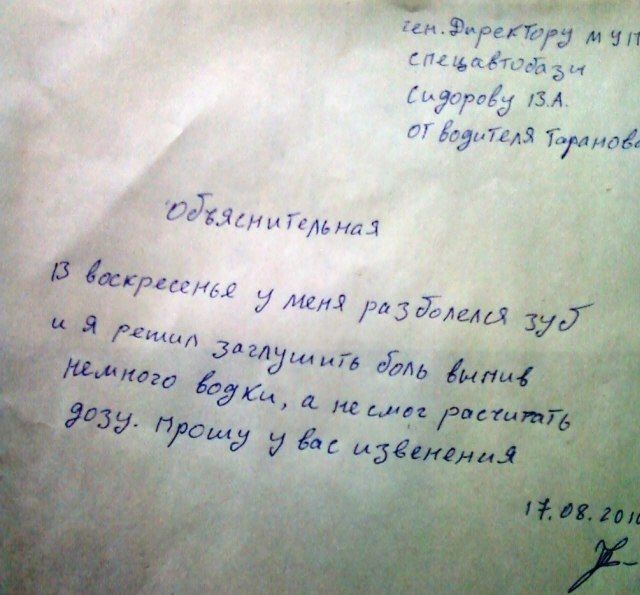 ген. Директору МУП
спецавтобази
Сидорову В.А.
от водителя Таранова
Объяснительная
В воскресенье у меня разболелся зуб
и я решил заглушить боль выпив
немного водки, а несмог расчитать
дозу. Прошу у вас извенения
17.08.201